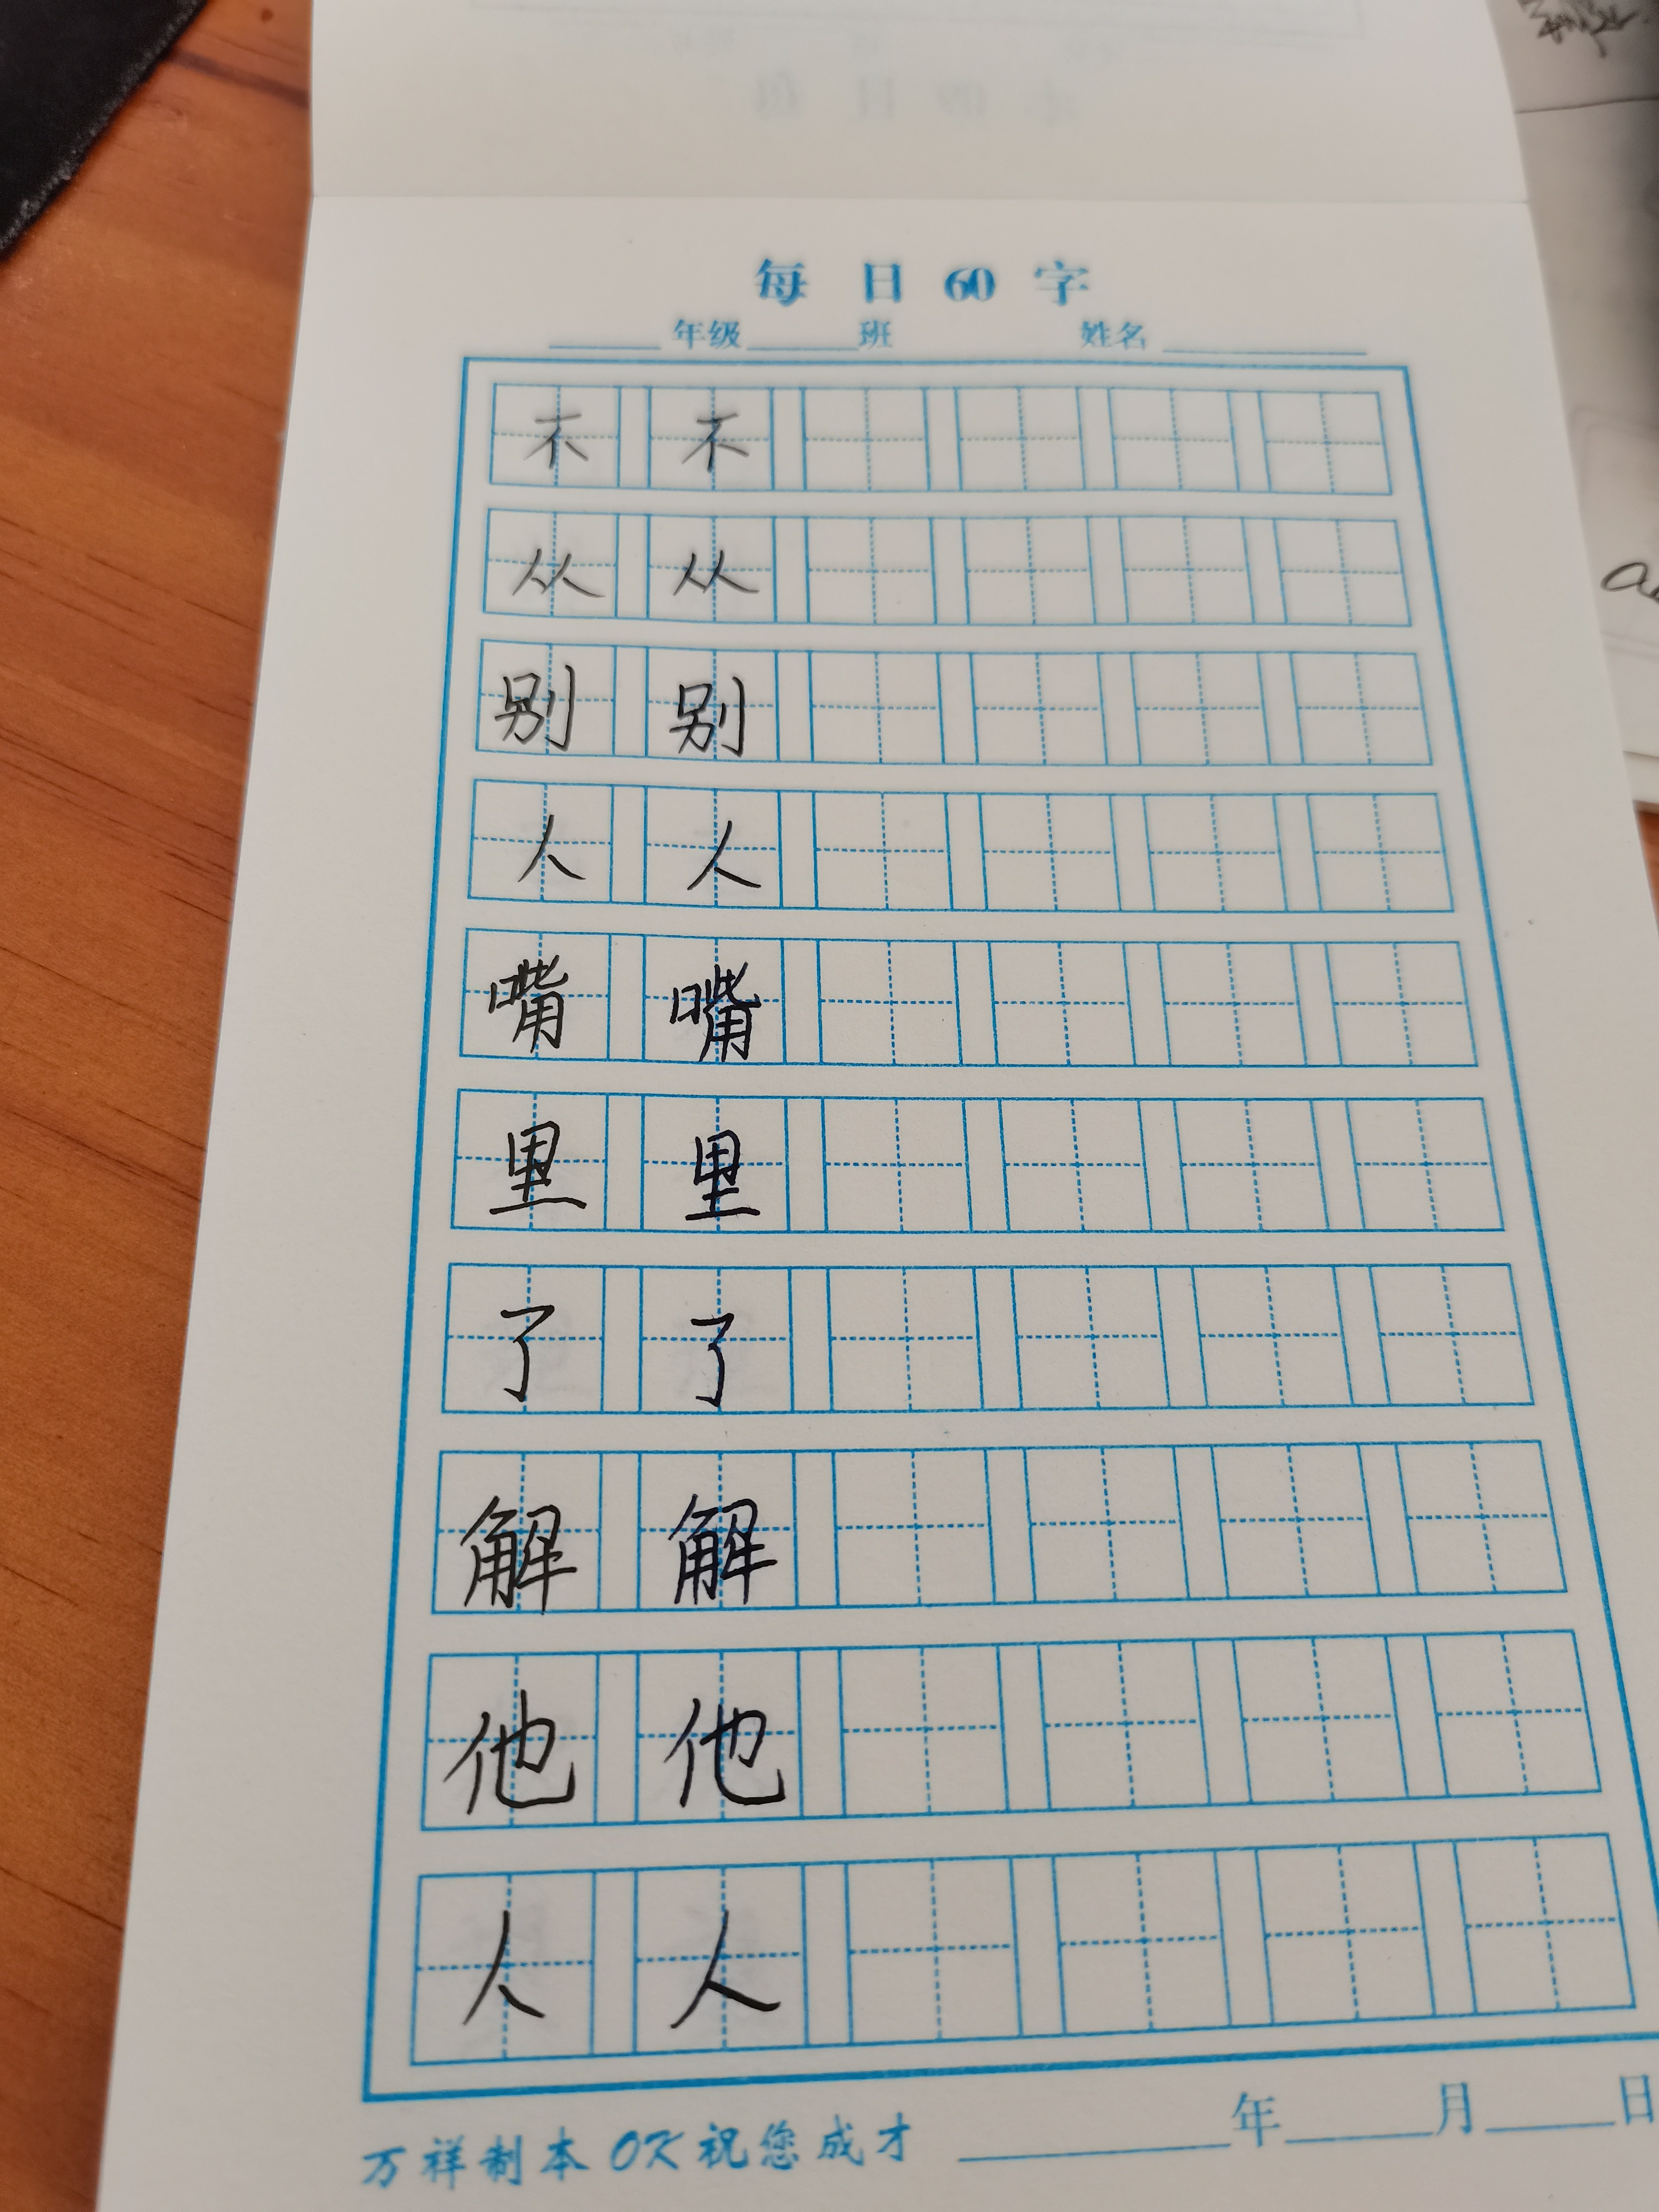 每日60字
年级 班 姓名
不 不
从 从
别 别
人 人
嘴 嘴
里 里
了 了
解 解
他 他
人 人
万祥制本 OK 祝您成才 年 月 日